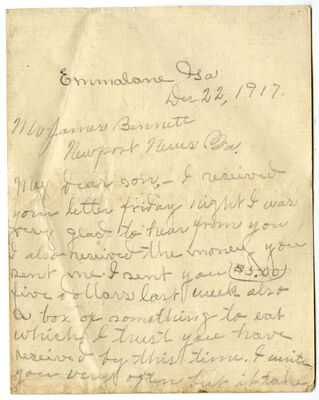 Emmalane Ga
Dec. 22, 1917.
Mr James Bennett
Newport News Va.
My dear son,- I received
your letter friday night I was
very glad to hear from you
I also received the money you
sent me I sent you $5.00
five dollars last week also
a box of something to eat
which I trust you have
received by this time. I write
you very often but it take